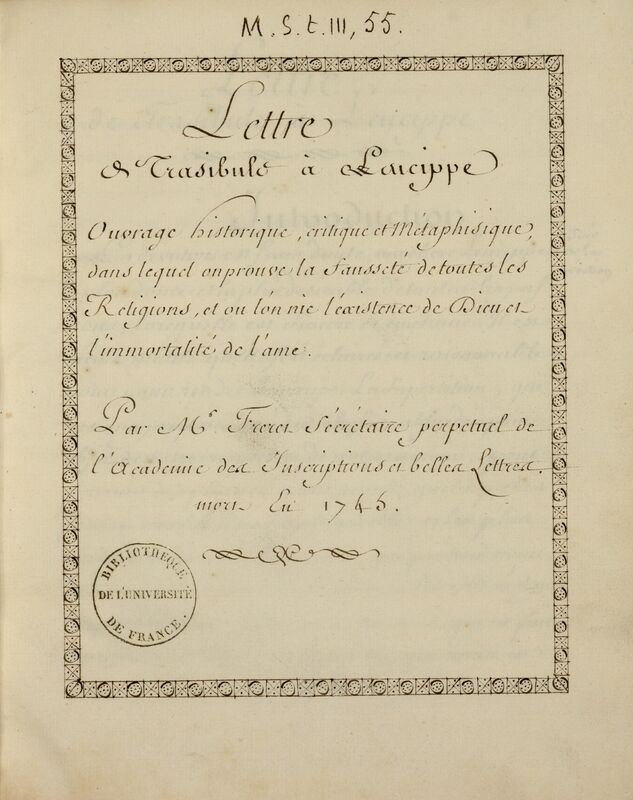 M.S.t.III, 55.
Lettre
de Trasibule à Leucippe
Ouvrage historique, critique et Métaphisique,
dans lequel on prouve la Fausseté de toutes les
Religions, et ou l'on nie l'éxistence de Dieu et
l'immortalité de l'ame.
Par Mr. Freret Sécrétaire perpetuel de
l'Academie des Inscriptions et belles Lettres.
mort En 1745.
BIBLIOTHEQUE
DE L'UNIVERSITÉ
DE FRANCE.